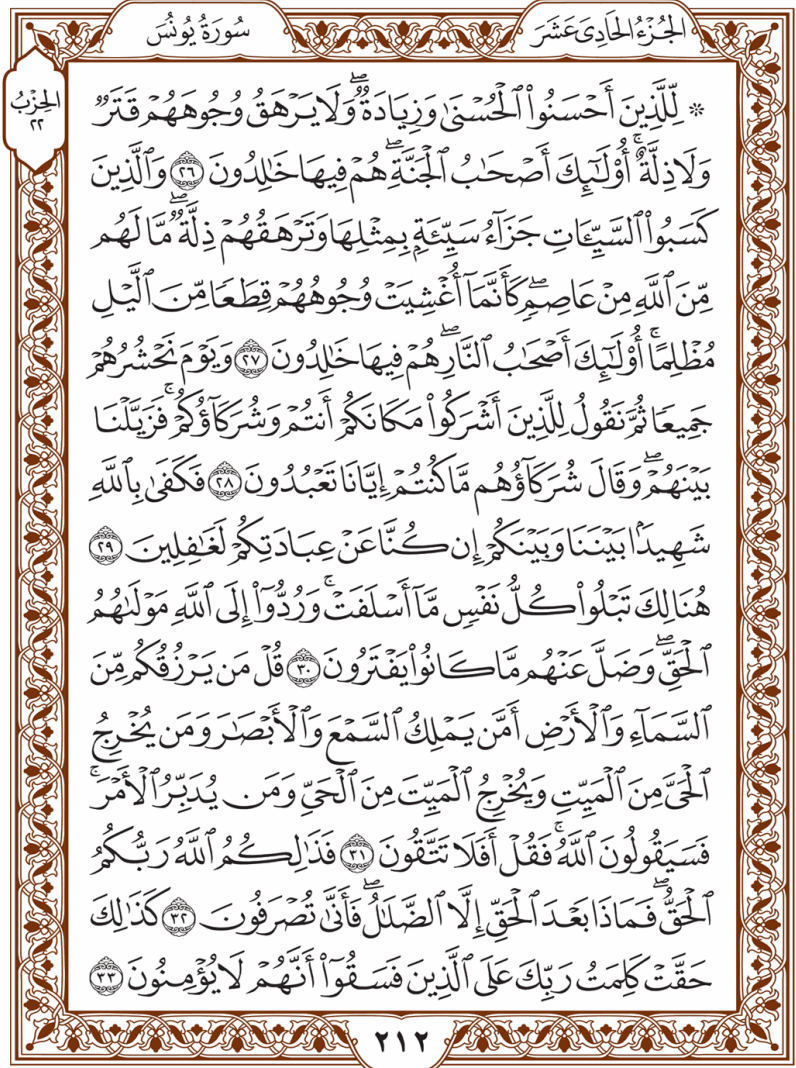 الجُزْءُ الحَادِى عَشَرَ
سُورَةُ يُونُسَ
الحِزْبُ
٢٢
۞ لِّلَّذِينَ أَحْسَنُوا۟ ٱلْحُسْنَىٰ وَزِيَادَةٌ ۖ وَلَا يَرْهَقُ وُجُوهَهُمْ قَتَرٌ
وَلَا ذِلَّةٌ ۚ أُو۟لَـٰٓئِكَ أَصْحَـٰبُ ٱلْجَنَّةِ ۖ هُمْ فِيهَا خَـٰلِدُونَ ٢٦ وَٱلَّذِينَ
كَسَبُوا۟ ٱلسَّيِّـَٔاتِ جَزَآءُ سَيِّئَةٍۭ بِمِثْلِهَا وَتَرْهَقُهُمْ ذِلَّةٌ ۖ مَّا لَهُم
مِّنَ ٱللَّهِ مِنْ عَاصِمٍ ۖ كَأَنَّمَآ أُغْشِيَتْ وُجُوهُهُمْ قِطَعًا مِّنَ ٱلَّيْلِ
مُظْلِمًا ۚ أُو۟لَـٰٓئِكَ أَصْحَـٰبُ ٱلنَّارِ ۖ هُمْ فِيهَا خَـٰلِدُونَ ٢٧ وَيَوْمَ نَحْشُرُهُمْ
جَمِيعًا ثُمَّ نَقُولُ لِلَّذِينَ أَشْرَكُوا۟ مَكَانَكُمْ أَنتُمْ وَشُرَكَآؤُكُمْ ۚ فَزَيَّلْنَا
بَيْنَهُمْ ۖ وَقَالَ شُرَكَآؤُهُم مَّا كُنتُمْ إِيَّانَا تَعْبُدُونَ ٢٨ فَكَفَىٰ بِٱللَّهِ
شَهِيدًۢا بَيْنَنَا وَبَيْنَكُمْ إِن كُنَّا عَنْ عِبَادَتِكُمْ لَغَـٰفِلِينَ ٢٩
هُنَالِكَ تَبْلُوا۟ كُلُّ نَفْسٍ مَّآ أَسْلَفَتْ ۚ وَرُدُّوٓا۟ إِلَى ٱللَّهِ مَوْلَىٰهُمُ
ٱلْحَقِّ ۖ وَضَلَّ عَنْهُم مَّا كَانُوا۟ يَفْتَرُونَ ٣٠ قُلْ مَن يَرْزُقُكُم مِّنَ
ٱلسَّمَآءِ وَٱلْأَرْضِ أَمَّن يَمْلِكُ ٱلسَّمْعَ وَٱلْأَبْصَـٰرَ وَمَن يُخْرِجُ
ٱلْحَىَّ مِنَ ٱلْمَيِّتِ وَيُخْرِجُ ٱلْمَيِّتَ مِنَ ٱلْحَىِّ وَمَن يُدَبِّرُ ٱلْأَمْرَ ۚ
فَسَيَقُولُونَ ٱللَّهُ ۚ فَقُلْ أَفَلَا تَتَّقُونَ ٣١ فَذَٰلِكُمُ ٱللَّهُ رَبُّكُمُ
ٱلْحَقُّ ۖ فَمَاذَا بَعْدَ ٱلْحَقِّ إِلَّا ٱلضَّلَـٰلُ ۖ فَأَنَّىٰ تُصْرَفُونَ ٣٢ كَذَٰلِكَ
حَقَّتْ كَلِمَتُ رَبِّكَ عَلَى ٱلَّذِينَ فَسَقُوٓا۟ أَنَّهُمْ لَا يُؤْمِنُونَ ٣٣
٢١٢